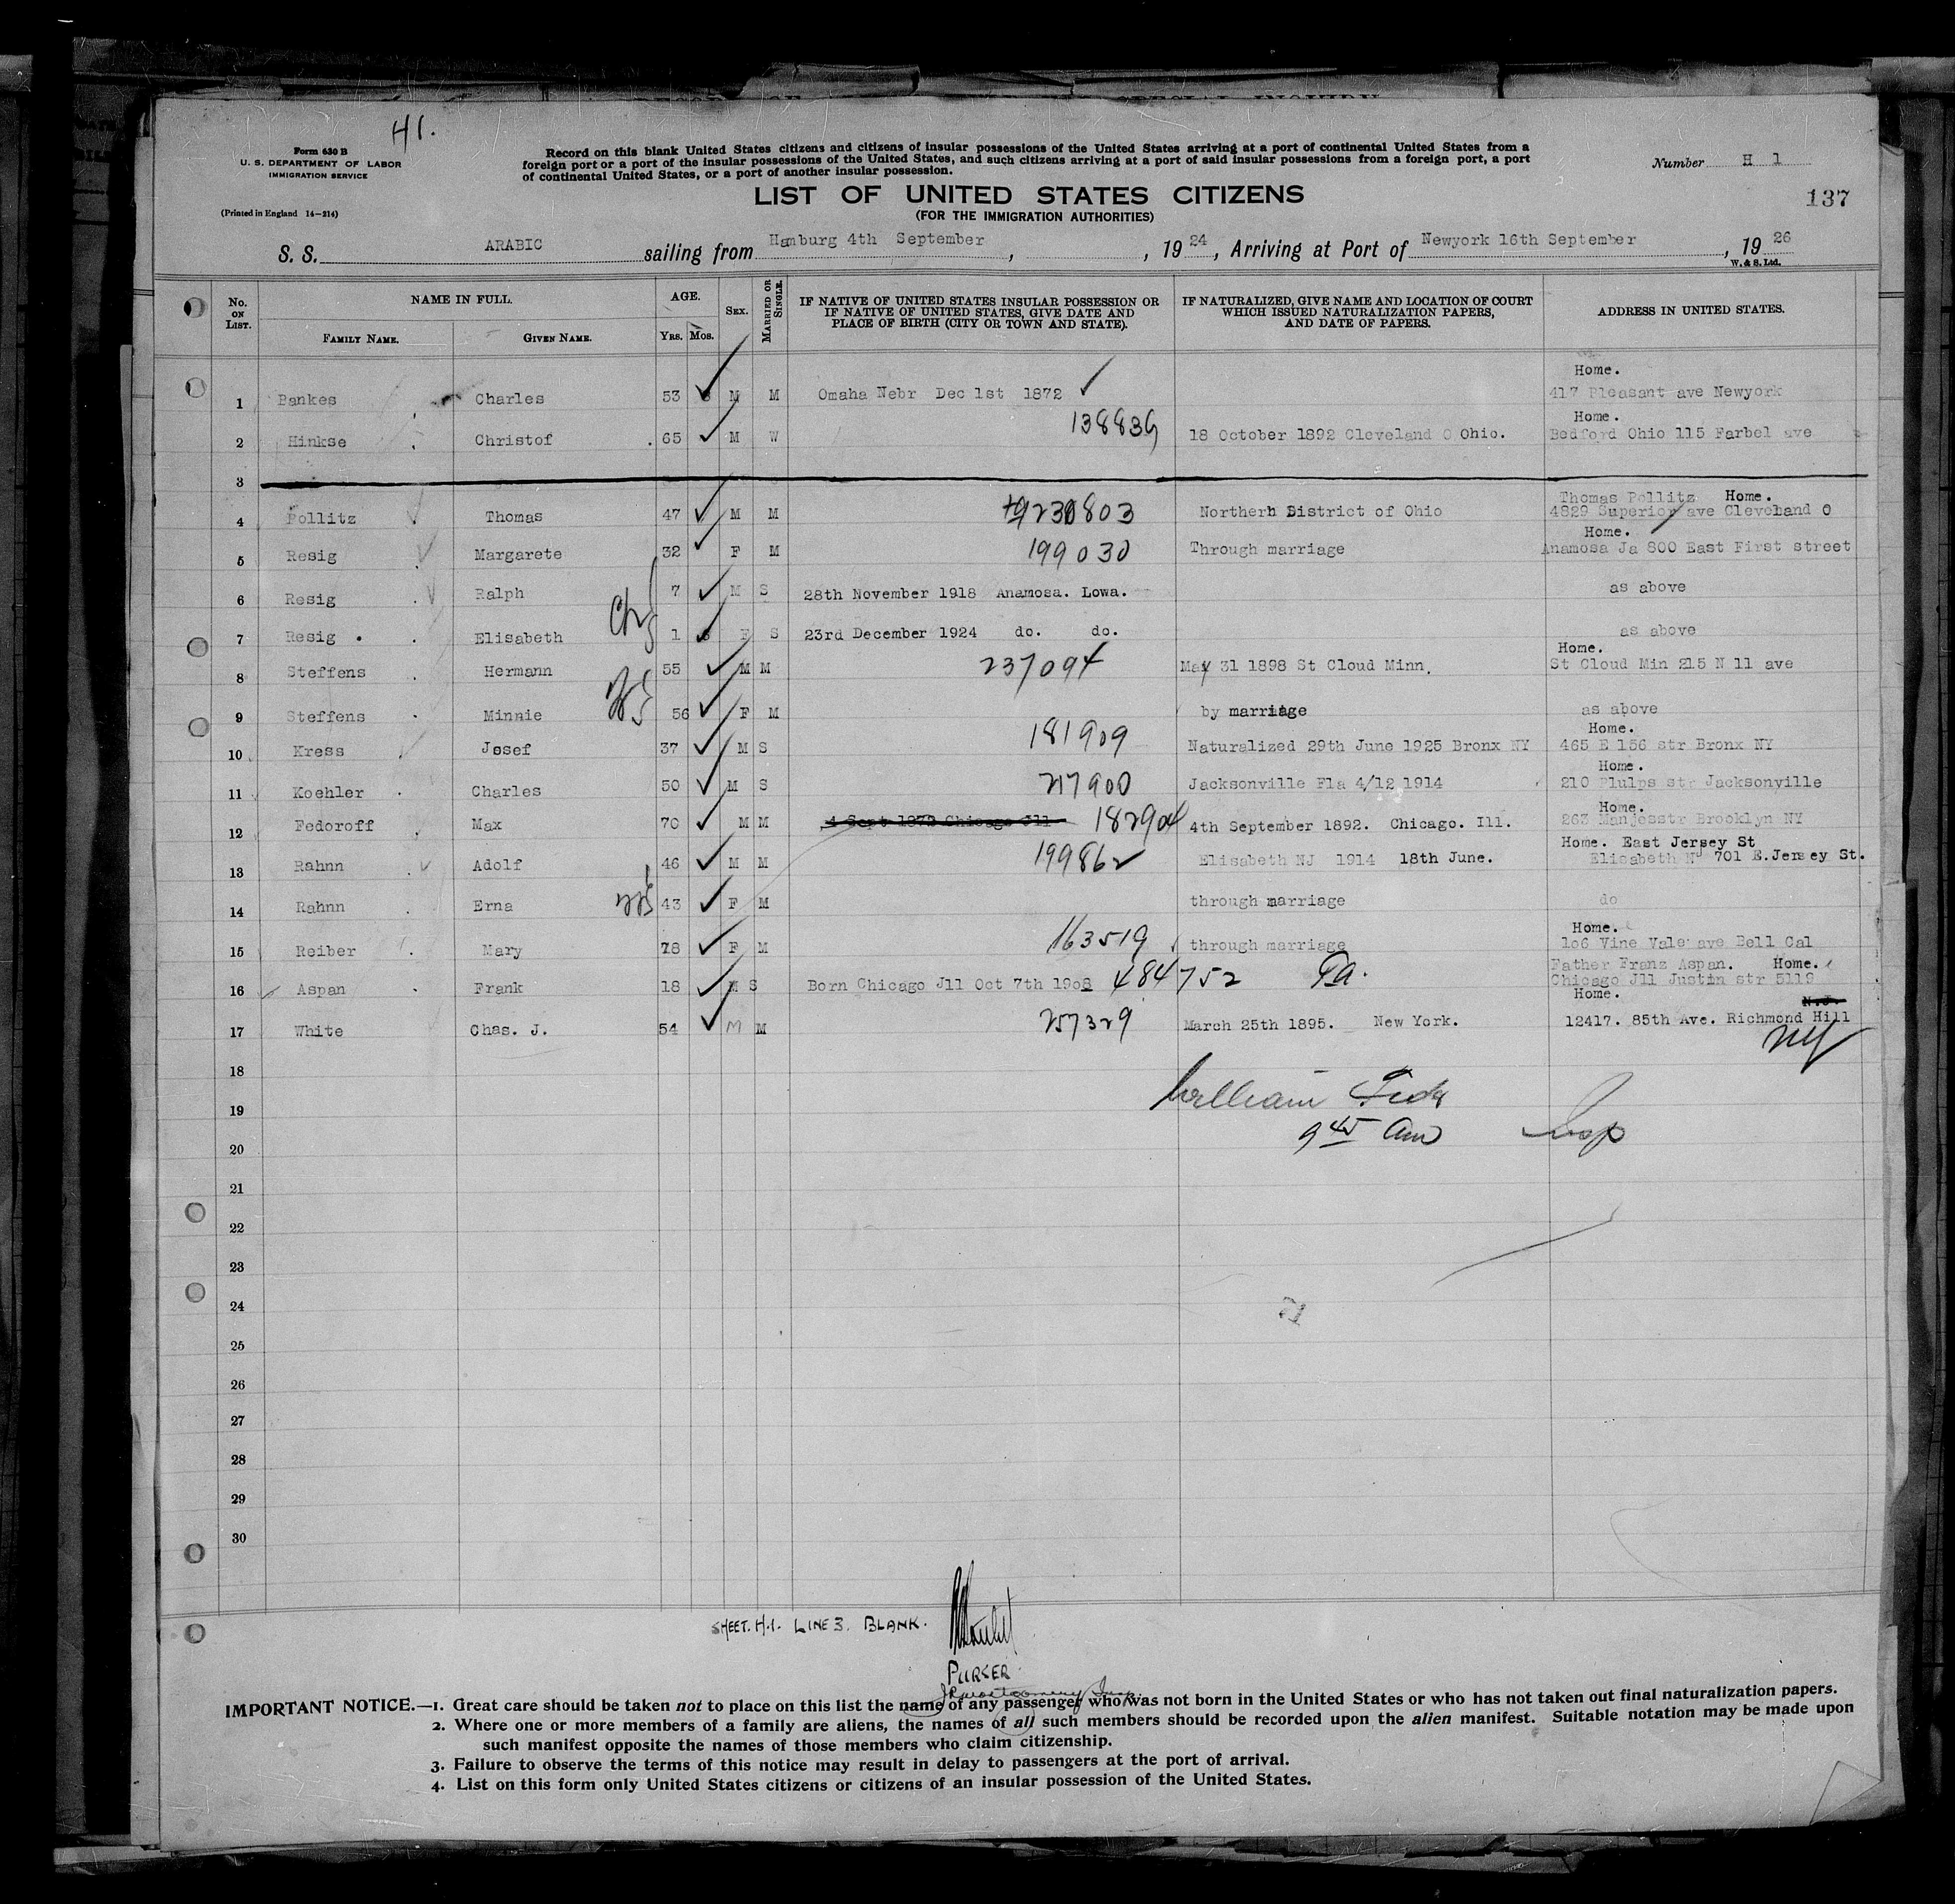 H1.
Form 630 B
U. S. DEPARTMENT OF LABOR
IMMIGRATION SERVICE
(Printed in England 14—214)
Record on this blank United States citizens and citizens of insular possessions of the United States arriving at a port of continental United States from a
foreign port or a port of the insular possessions of the United States, and such citizens arriving at a port of said insular possessions from a foreign port, a port
of continental United States, or a port of another insular possession.
Number H 1
137
LIST OF UNITED STATES CITIZENS
(FOR THE IMMIGRATION AUTHORITIES)
S. S. ARABIC sailing from Hamburg 4th September , , 19 24 , Arriving at Port of Newyork 16th September , 19 26
W. & S. Ltd.
No. ON LIST. NAME IN FULL. AGE. SEX. MARRIED OR SINGLE. IF NATIVE OF UNITED STATES INSULAR POSSESSION OR IF NATIVE OF UNITED STATES, GIVE DATE AND PLACE OF BIRTH (CITY OR TOWN AND STATE). IF NATURALIZED, GIVE NAME AND LOCATION OF COURT WHICH ISSUED NATURALIZATION PAPERS, AND DATE OF PAPERS. ADDRESS IN UNITED STATES.
FAMILY NAME. GIVEN NAME. YRS. MOS.
Home.
1 Bankes Charles 53 M M Omaha Nebr Dec 1st 1872 417 Pleasant ave Newyork
Home.
2 Hinkse Christof 65 M W 138839 18 October 1892 Cleveland O Ohio. Bedford Ohio 115 Farbel ave
3
Thomas Pollitz Home.
4 Pollitz Thomas 47 M M Northern District of Ohio 4829 Superior ave Cleveland O
Home.
5 Resig Margarete 32 F M 199030 Through marriage Anamosa Ja 800 East First street
6 Resig Ralph 7 M S 28th November 1918 Anamosa. Lowa. as above
7 Resig Elisabeth 1 F S 23rd December 1924 do. do. as above
Home.
8 Steffens Hermann 55 M M 237094 May 31 1898 St Cloud Minn. St Cloud Min 215 N 11 ave
9 Steffens Minnie 56 F M by marriage as above
Home.
10 Kress Josef 37 M S 181909 Naturalized 29th June 1925 Bronx NY 465 E 156 str Bronx NY
Home.
11 Koehler Charles 50 M S 217900 Jacksonville Fla 4/12 1914 210 Plulps str Jacksonville
Home.
12 Fedoroff Max 70 M M 4 Sept 1872 Chicago Jll 182904 4th September 1892. Chicago. Ill. 263 Manjesstr Brooklyn NY
Home. East Jersey St
13 Rahnn Adolf 46 M M 199862 Elisabeth NJ 1914 18th June. Elisabeth NJ 701 E.Jersey St.
14 Rahnn Erna 43 F M through marriage do
Home.
15 Reiber Mary 78 F M 163519 through marriage 106 Vine Vale ave Bell Cal
Father Franz Aspan. Home.
16 Aspan Frank 18 M S Born Chicago Jll Oct 7th 1908 484752 Chicago Jll Justin str 5119
Home. N.J.
17 White Chas. J. 54 M M 257329 March 25th 1895. New York. 12417. 85th Ave. Richmond Hill
NY
18
William
19
9 45 am Insp
20
21
22
23
24
25
26
27
28
29
30
SHEET. H.1. LINE 3. BLANK.
PURSER.
IMPORTANT NOTICE.—1. Great care should be taken not to place on this list the name of any passenger who was not born in the United States or who has not taken out final naturalization papers.
2. Where one or more members of a family are aliens, the names of all such members should be recorded upon the alien manifest. Suitable notation may be made upon
such manifest opposite the names of those members who claim citizenship.
3. Failure to observe the terms of this notice may result in delay to passengers at the port of arrival.
4. List on this form only United States citizens or citizens of an insular possession of the United States.